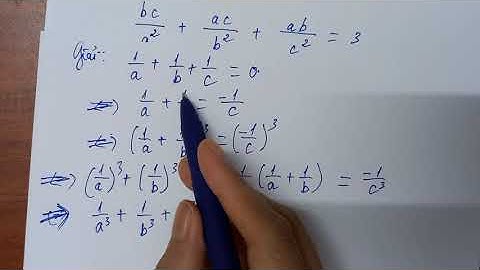 bc/a² + ac/b² + ab/c² = 3
Giải: 1/a + 1/b + 1/c = 0.
⇔) 1/a + = -1/c
⇔) (1/a + )³ = (-1/c)³
⇔) (1/a)³ + (1/b)³ (1/a + 1/b) = -1/c³
⇔) 1/a³ + 1/b³ +